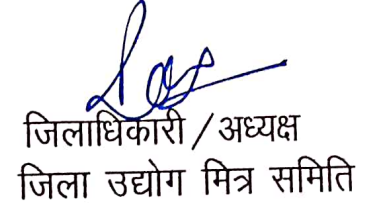 जिलाधिकारी / अध्यक्ष
जिला उद्योग मित्र समिति